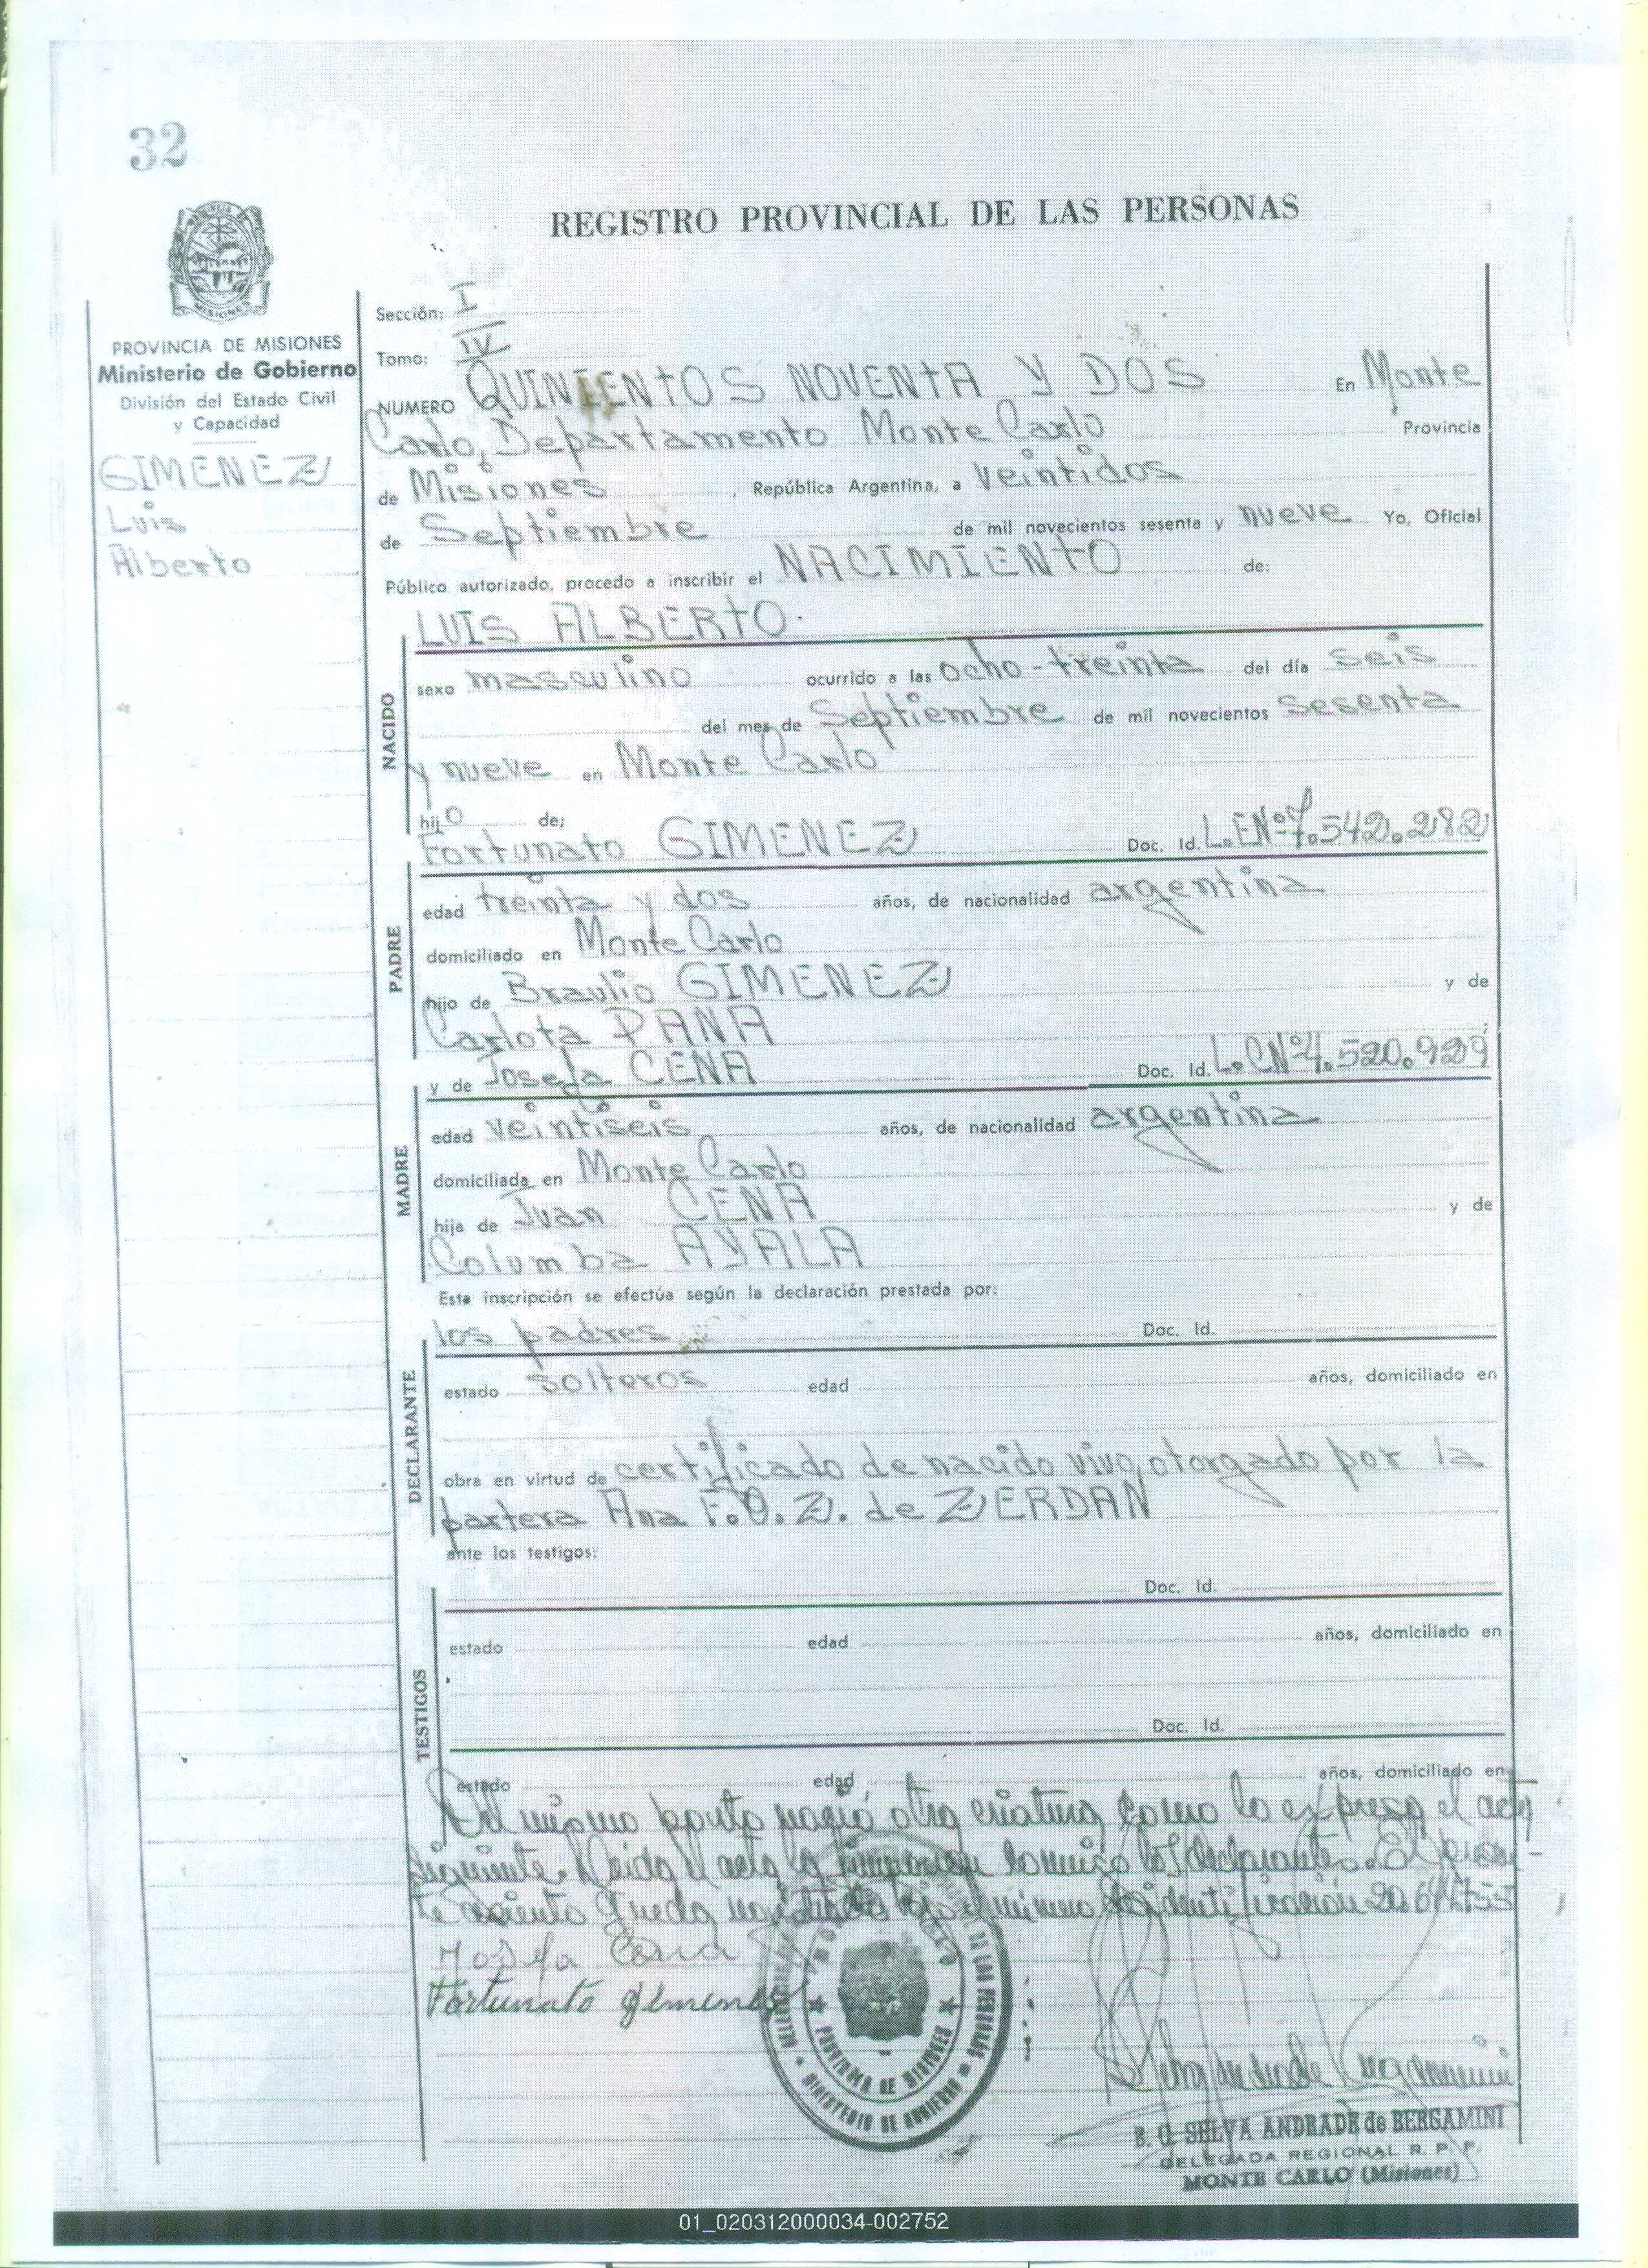 32
REGISTRO PROVINCIAL DE LAS PERSONAS
MISIONES
PROVINCIA DE MISIONES
Ministerio de Gobierno
División del Estado Civil
y Capacidad
GIMENEZ
Luis
Alberto
Sección: I
Tomo: IV
NUMERO QUINIENTOS NOVENTA Y DOS En Monte
Carlo, Departamento Monte Carlo Provincia
de Misiones, República Argentina, a veintidos
de Septiembre de mil novecientos sesenta y nueve Yo, Oficial
Público autorizado, procedo a inscribir el NACIMIENTO de:
LUIS ALBERTO.
NACIDO
sexo masculino ocurrido a las ocho-treinta del día seis
del mes de Septiembre de mil novecientos sesenta
y nueve en Monte Carlo
hijo de;
Fortunato GIMENEZ Doc. Id. L.E.Nº 7.542.282
PADRE
edad treinta y dos años, de nacionalidad argentina
domiciliado en Monte Carlo
hijo de Braulio GIMENEZ y de
Carlota PANA
y de Josefa CENA Doc. Id. L.C.Nº 4.520.929
MADRE
edad veintiseis años, de nacionalidad argentina
domiciliada en Monte Carlo
hija de Juan CENA y de
Columba AYALA
Esta inscripción se efectúa según la declaración prestada por:
los padres Doc. Id.
DECLARANTE
estado solteros edad años, domiciliado en
obra en virtud de certificado de nacido vivo, otorgado por la
partera Ana F.O.Z. de ZERDAN
ante los testigos:
Doc. Id.
TESTIGOS
estado edad años, domiciliado en
Doc. Id.
estado edad años, domiciliado en
Del mismo parto nació otra criatura como lo expresa el acta
siguiente. Leida el acta la firman conmigo los declarantes. El presen-
te asiento queda registrado número identificación
Josefa Cena
Fortunato Gimenez
PROVINCIA DE MISIONES
MINISTERIO DE GOBIERNO
DE LAS PERSONAS
B. O. SELVA ANDRADE de BERGAMINI
DELEGADA REGIONAL R. P. P.
MONTE CARLO (Misiones)
01_020312000034-002752